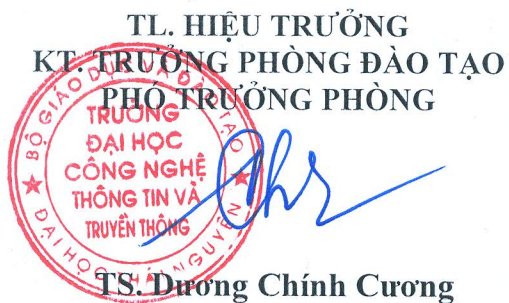 TL. HIỆU TRƯỞNG
KT. TRƯỞNG PHÒNG ĐÀO TẠO
PHÓ TRƯỞNG PHÒNG
BỘ GIÁO DỤC VÀ ĐÀO TẠO
TRƯỜNG
ĐẠI HỌC
CÔNG NGHỆ
THÔNG TIN VÀ
TRUYỀN THÔNG
ĐẠI HỌC THÁI NGUYÊN
TS. Dương Chính Cương